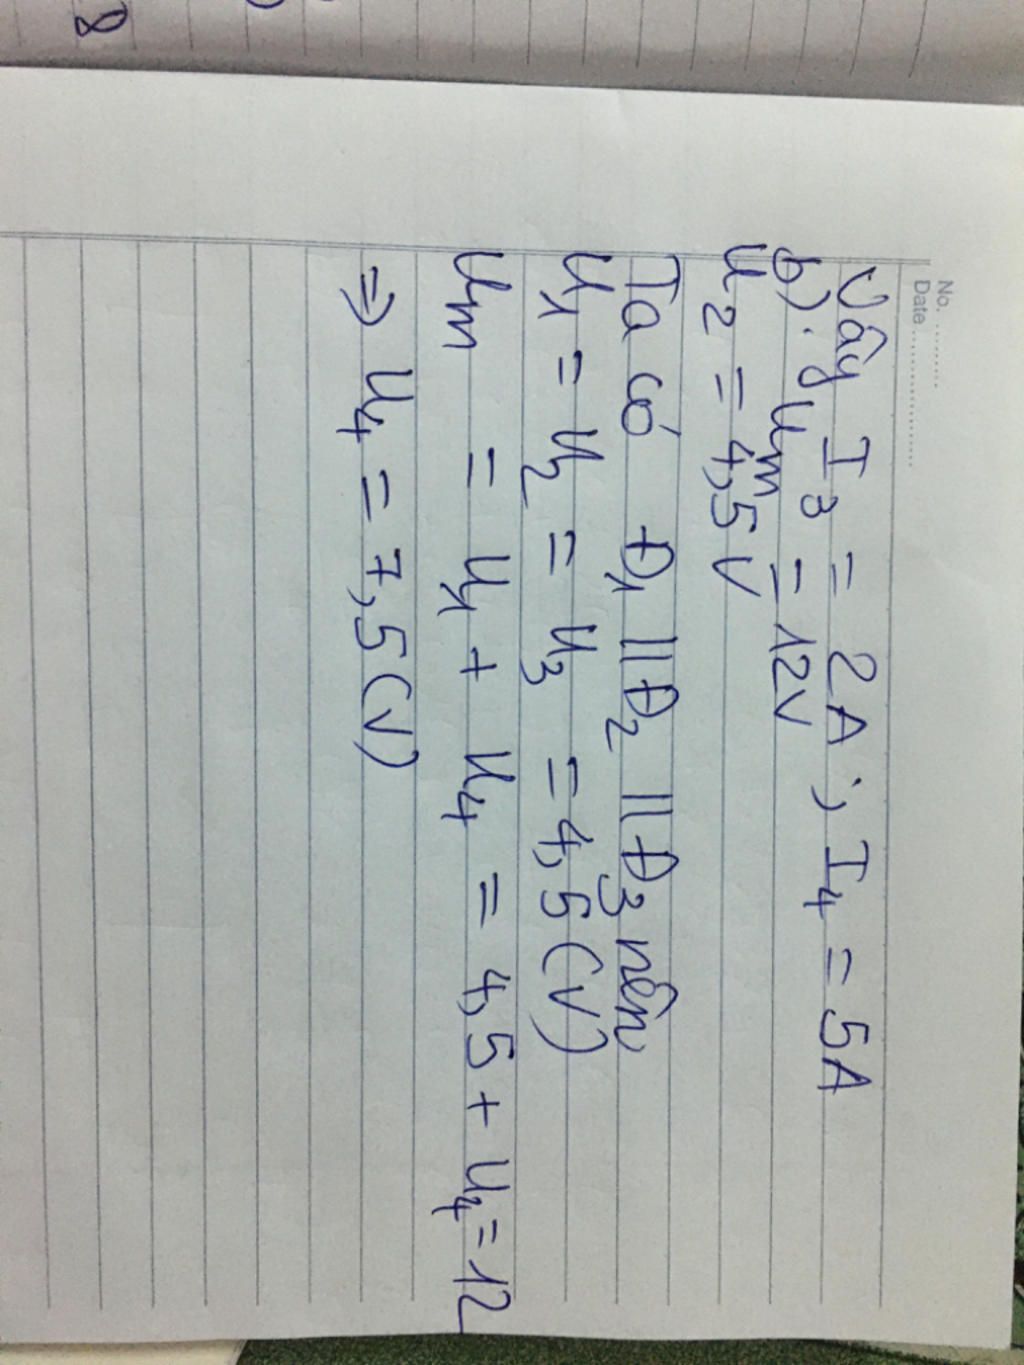 No. .........
Date ..................
Vậy I3 = 2A ; I4 = 5A
b). Um = 12V
U2 = 4,5V
Ta có Đ1 || Đ2 || Đ3 nên
U1 = U2 = U3 = 4,5 (V)
Um = U1 + U4 = 4,5 + U4 = 12
=> U4 = 7,5 (V)
8